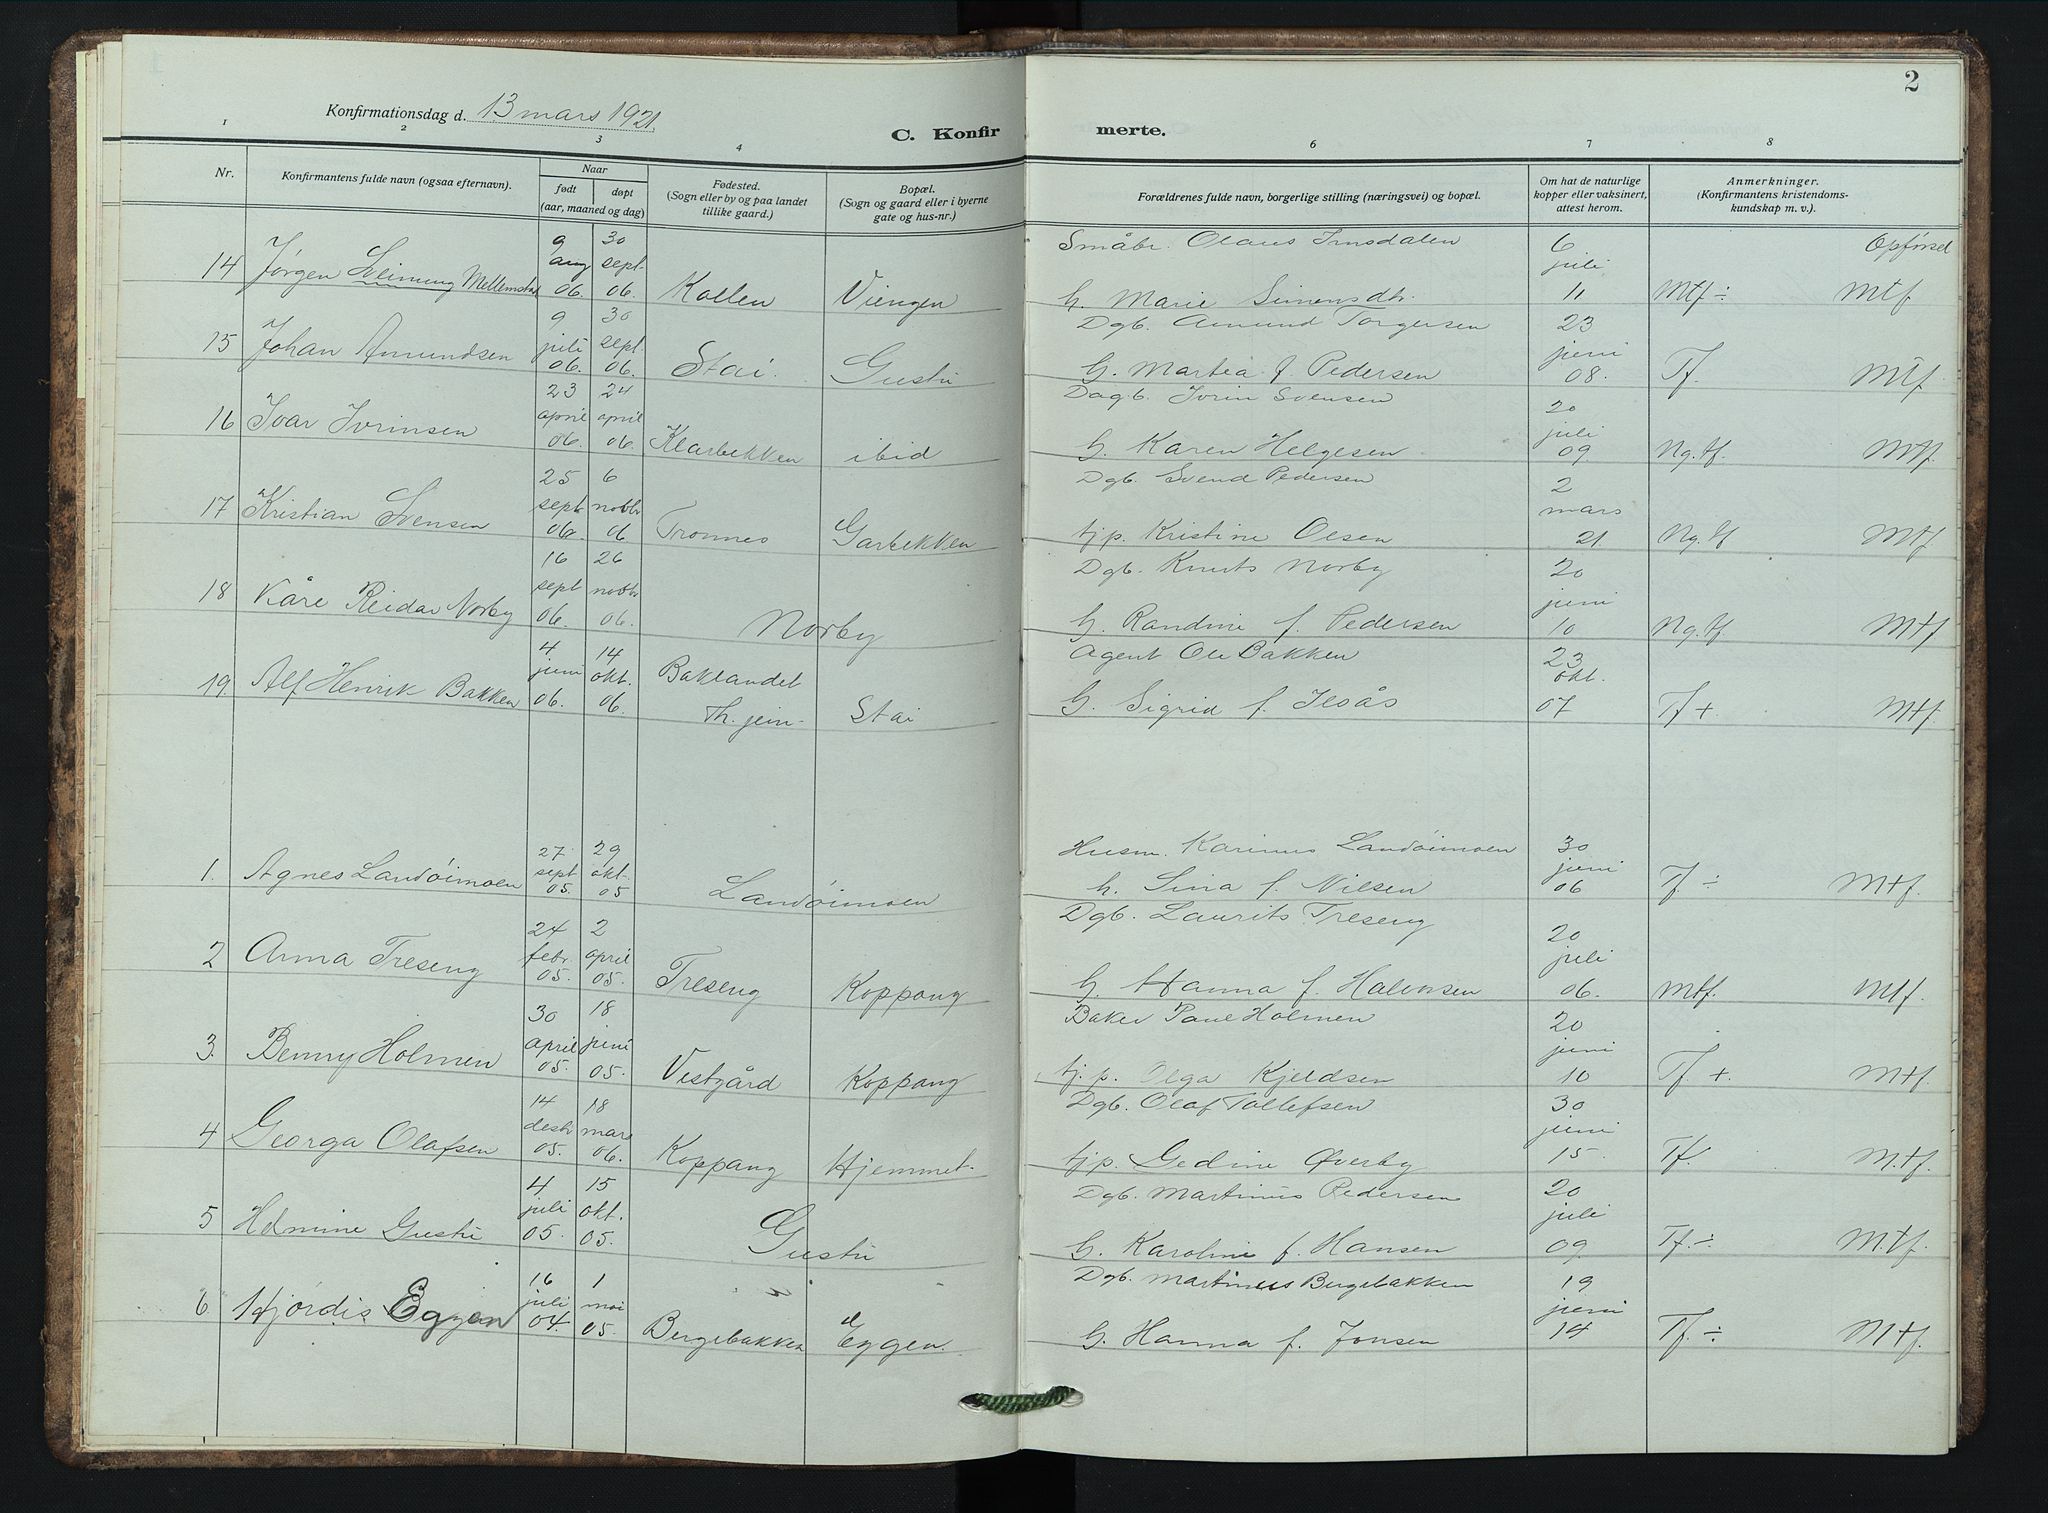 2
Konfirmationsdag d. 13 mars 1921.
C. Konfir merte.
1 2 3 4 6 7 8
Nr. Konfirmantens fulde navn (ogsaa efternavn). Naar født døpt (aar, maaned og dag) Fødested. (Sogn eller by og paa landet tillike gaard.) Bopæl. (Sogn og gaard eller i byerne gate og hus-nr.) Forældrenes fulde navn, borgerlige stilling (næringsvei) og bopæl. Om hat de naturlige kopper eller vaksinert, attest herom. Anmerkninger. (Konfirmantens kristendoms- kundskap m. v.).
9 30 Småbr. Olaus Imsdalen 6 Opførsel
aug sept. juli
14 Jørgen Mellemstad 06. 06. Kollen Viengen G. Marie Simensdtr. 11 Mtf ÷ Mtf.
9 30 Dgb. Amund Torgersen 23
juli sept. juni
15 Johan Amundsen 06. 06. Stai. Gustu G. Martea f. Pedersen 08. Tf. Mtf.
23 24 Dagb. Ivrin Svensen 20
april april juli
16 Ivar Ivrinsen 06. 06. Klarbekken ibid G. Karen Helgesen 09. Ng. tf. Mtf.
25 6 Dgb. Svend Pedersen 2
sept. novbr mars
17 Kristian Svensen 06. 06 Tronnes Garbekken tjp. Kristine Olsen 21. Ng. tf Mtf.
16 26 Dgb. Knut Norby 20
sept novbr juni
18 Kåre Reidar Norby 06. 06. Norby G. Randine f. Pedersen 10 Ng. tf. Mtf.
4 14 Agent Ole Bakken 23
juni okt. Baklandet okt.
19. Alf Henrik Bakken 06. 06. Th.jem- Stai G. Sigrid f. Ilsås 07 Tf +. Mtf.
27 29 Husm. Karinus Landøimoen 30
sept okt. juni
1. Agnes Landøimoen 05. 05 Landøimoen G. Sina f. Nilsen 06 Tf ÷ Mtf.
24 2 Dgb. Laurits Treseng 20
febr. april juli
2 Anna Treseng 05. 05. Treseng Koppang G. Hanna f. Halvorsen 06. Mtf. Mtf.
30 18 Baker Paul Holmen 20
april juni juni
3. Benny Holmen 05. 05. Vestgård Koppang tj. p. Olga Kjeldsen 10 Tf. +. Mtf.
14 18 Dgb. Olaf Tollefsen 30
desbr mars juni
4 Georga Olafsen 05. 06. Koppang Hjemmet. tjp. Gedine Øverby 15. Tf. M.tf.
4 15 Dgb. Martinus Pedersen 20
juli okt. juli
5 Helmine Gustu 05. 05. Gustu G. Karoline f. Hansen 09. Tf. ÷ M.tf.
16 1 Dgb. Martinus Bergebakken 19
juli mai juni
6. Hjørdis Eggen 04. 05. Bergebakken Eggen. G. Hanna f. Jonsen 14 Tf. ÷ Mtf.